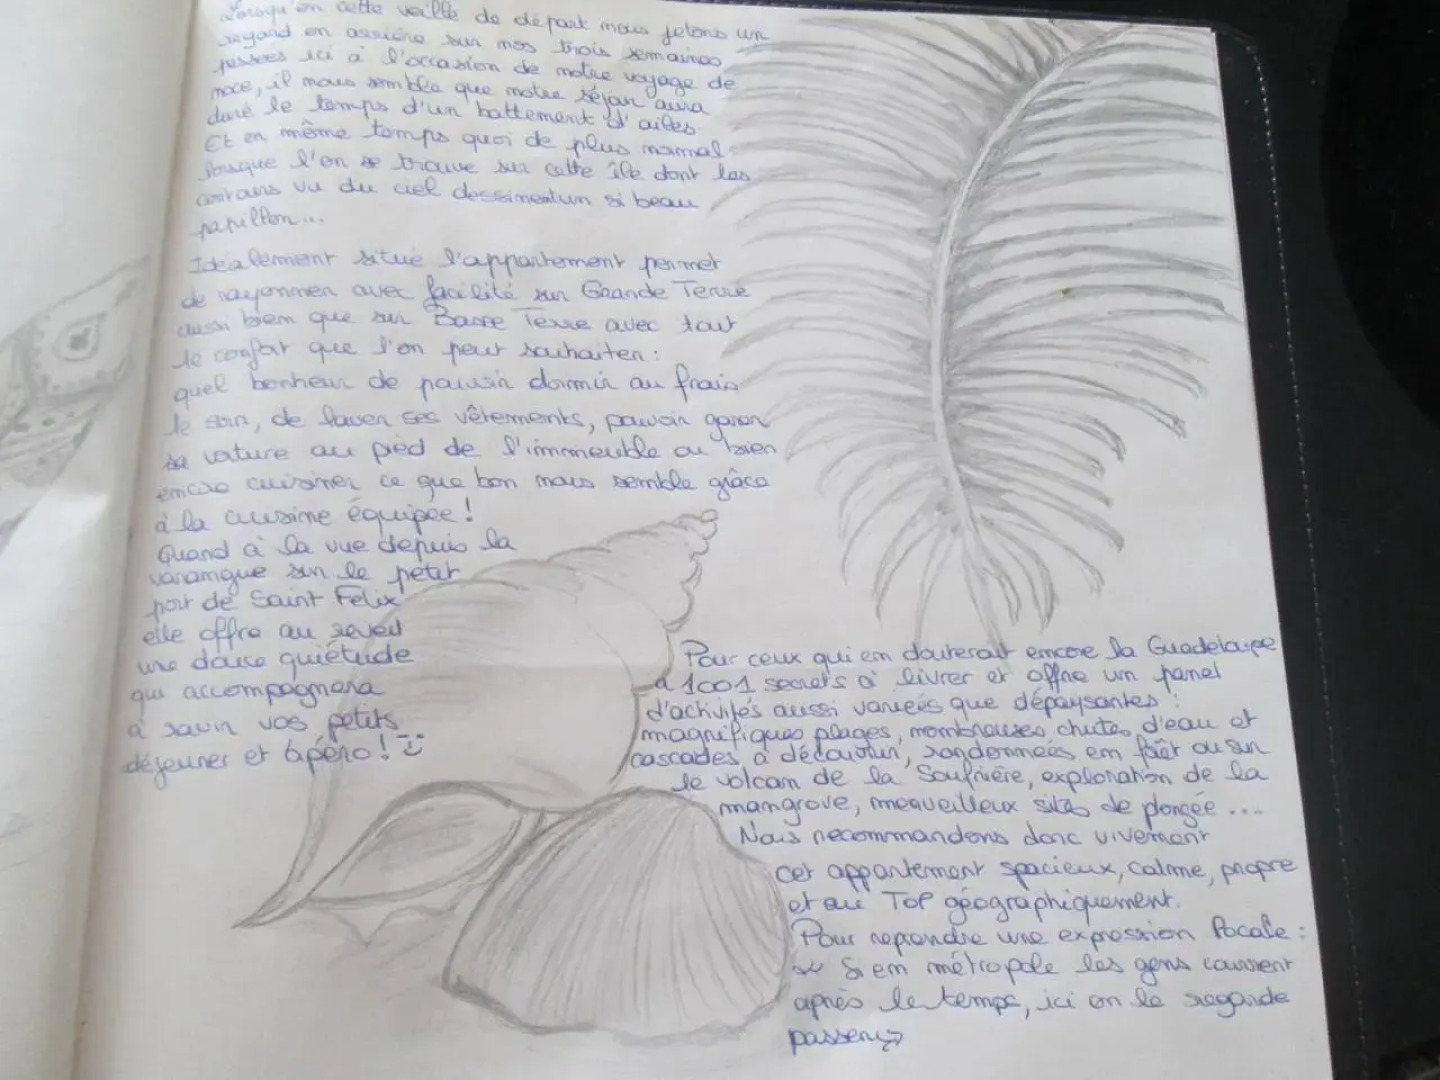 Lorsqu'en cette veille de départ nous jetons un
regard en arrière sur nos trois semaines
passées ici à l'occasion de notre voyage de
noce, il nous semble que notre séjour aura
duré le temps d'un battement d'ailes
Et en même temps quoi de plus normal
lorsque l'on se trouve sur cette île dont les
contours vu du ciel dessinent un si beau
papillon...
Idéalement situé l'appartement permet
de rayonner avec facilité sur Grande Terre
aussi bien que sur Basse Terre avec tout
le confort que l'on peut souhaiter :
quel bonheur de pouvoir dormir au frais
le soir, de laver ses vêtements, pouvoir garer
sa voiture au pied de l'immeuble ou bien
encore cuisiner ce que bon nous semble grâce
à la cuisine équipée !
Quand à la vue depuis la
varangue sur le petit
port de Saint Félix
elle offre au réveil
une douce quiétude
qui accompagnera
à ravir vos petits
déjeuner et apéro ! :)
Pour ceux qui en douterait encore la Guadeloupe
a 1001 secrets à livrer et offre un panel
d'activités aussi variées que dépaysantes :
magnifiques plages, nombreuses chutes d'eau et
cascades à découvrir, randonnées en forêt ou sur
le volcan de la Soufrière, exploration de la
mangrove, merveilleux sites de plongée ....
Nous recommandons donc vivement
cet appartement spacieux, calme, propre
et au TOP géographiquement.
Pour reprendre une expression locale :
" Si en métropole les gens courent
après le temps, ici on le regarde
passer "